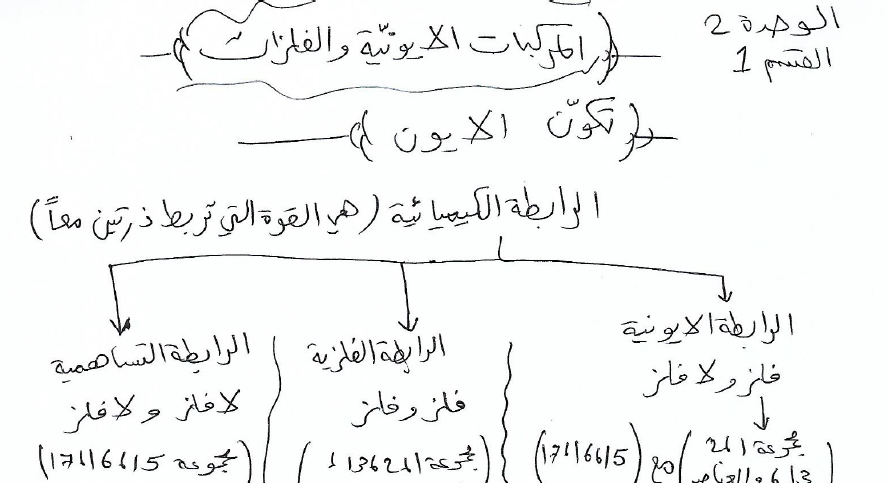 الوحدة 2
القسم 1
المركبات الايونيّة والفلزات
تكوّن الايون
الرابطة الكيميائية (هي القوة التي تربط ذرتين معاً)
الرابطة الايونية
فلز ولا فلز
مجموعة
الرابطة الفلزية
فلز وفلز
مجموعة
الرابطة التساهمية
لافلز ولافلز
مجموعة